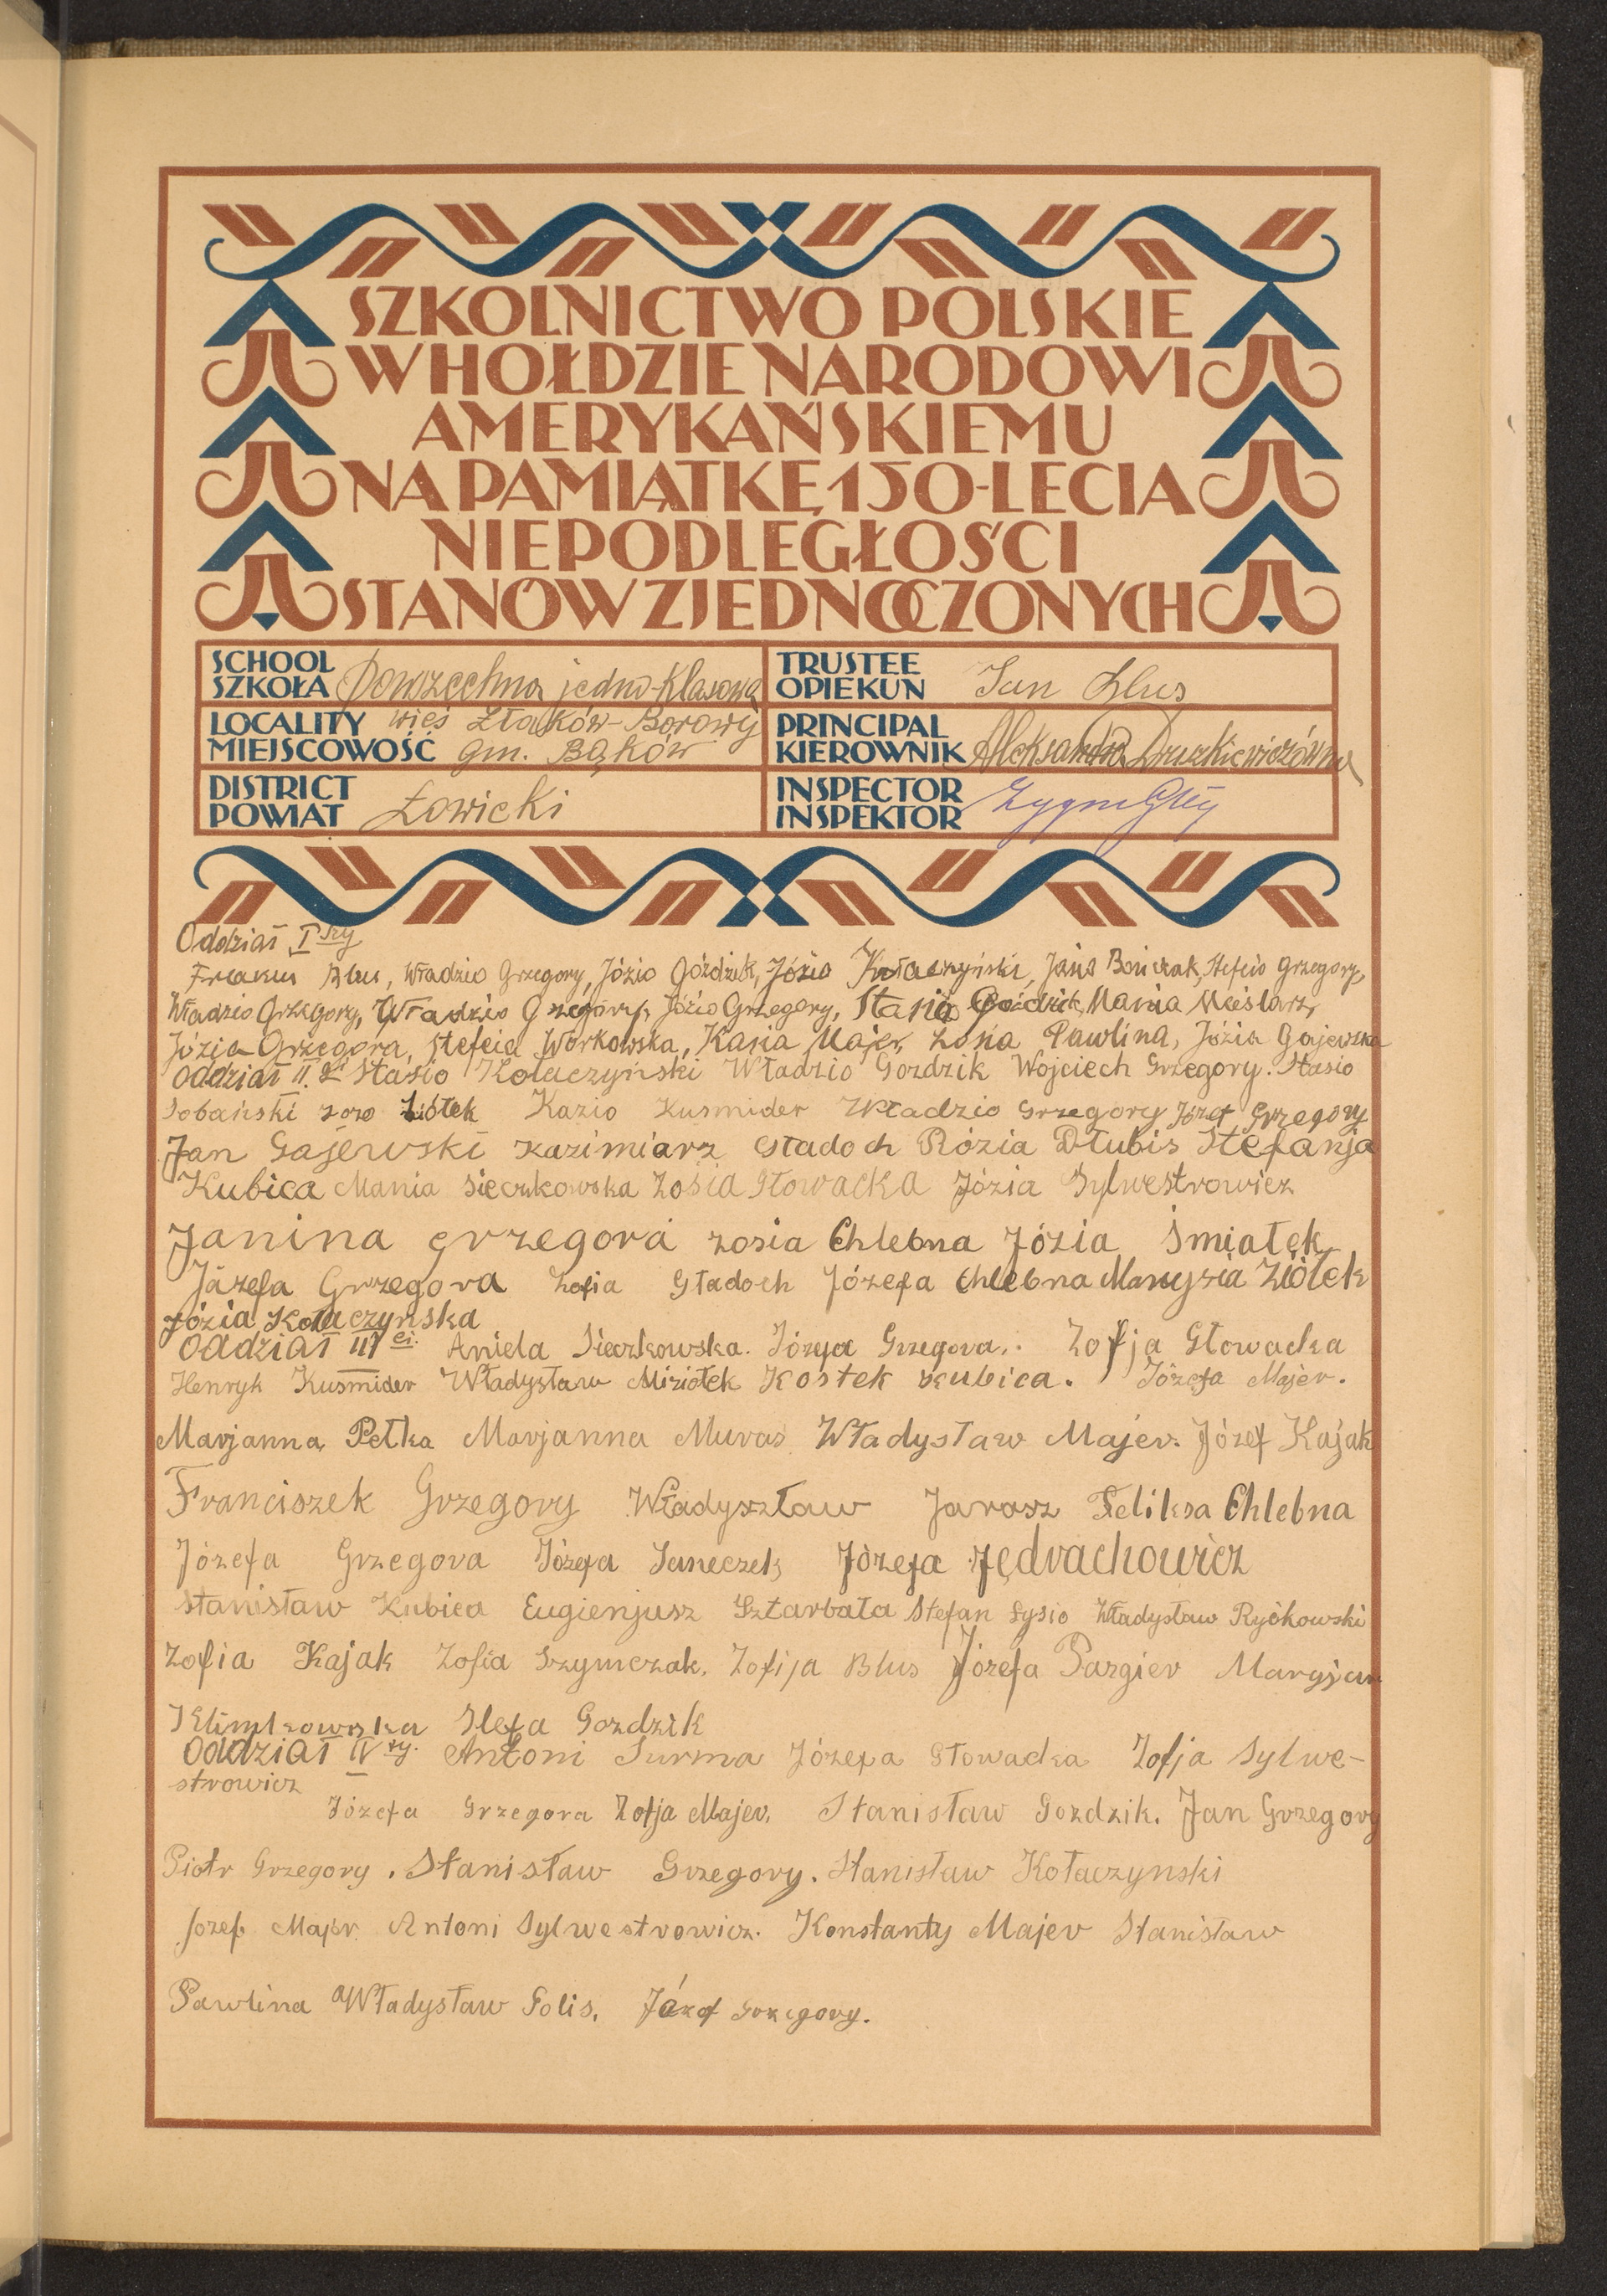 SZKOLNICTWO POLSKIE
W HOŁDZIE NARODOWI
AMERYKAŃSKIEMU
NA PAMIĄTKĘ 150-LECIA
NIEPODLEGŁOŚCI
STANÓW ZJEDNOCZONYCH
SCHOOL
SZKOŁA Powszechna jedno-Klasowa
TRUSTEE
OPIEKUN Jan Blus
LOCALITY wieś Złaków-Borowy
MIEJSCOWOŚĆ gm. Bąków
PRINCIPAL
KIEROWNIK Aleksandra
DISTRICT
POWIAT Łowicki
INSPECTOR
INSPEKTOR
Oddział I szy
Franuś Blus, Władzio Grzegory, Józio Góździk, Józio Kołaczyński, Jaś Bończak, Stefcio Grzegory,
Władzio Grzegory, Władzio Grzegory, Józio Grzegory, Stasio Goździk, Mania
Józia Grzegora, Stefcia Workowska, Kasia Majer, Zosia Pawlina, Józia Gajewska
Oddział II. gi Stasio Kołaczyński Władzio Gozdzik Wojciech Grzegory. Stasio
Sobański Ziółek Kazio Kusmider Władzio Grzegory Józef Grzegory
Jan Gajewski Kazimiarz Gładoch Rózia Dłubis Stefanja
Kubica Mania Sieczkowska Zosia Głowacka Józia Sylwestrowicz
Janina Grzegora Zosia Chlebna Józia Śmiałek
Józefa Grzegora Zofia Gładoch Józefa Chlebna Marysia Ziółek
Józia Kołaczyńska
Oddział III ci. Aniela Sieczkowska. Józefa Grzegora. Zofja Głowacka
Henryk Kusmider Władysław Miziołek Kostek Kubica. Józefa Majer.
Marjanna Petka Marjanna Muras Władysław Majer. Józef Kajak
Franciszek Grzegory Władyszław Jarosz Feliksa Chlebna
Józefa Grzegora Józefa Janeczek Józefa Jędrachowicz
Stanisław Kubica Eugienjusz Sztarbała Stefan Łysio Władysław Ryókowski
Zofia Kajak Zofia Szymczak. Zofija Blus Józefa Pazgier Maryjan
Klimkowska Stefa Gozdzik
Oddział IV ty. Antoni Surma Józefa Głowacka Zofja Sylwe-
strowicz
Józefa Grzegora Zofja Majer. Stanisław Gozdzik. Jan Grzegory
Piotr Grzegory. Stanisław Grzegory. Stanisław Kołaczynski
Józef Majer Antoni Sylwestrowicz. Konstanty Majer Stanisław
Pawlina Władysław Solis. Józef Grzegory.